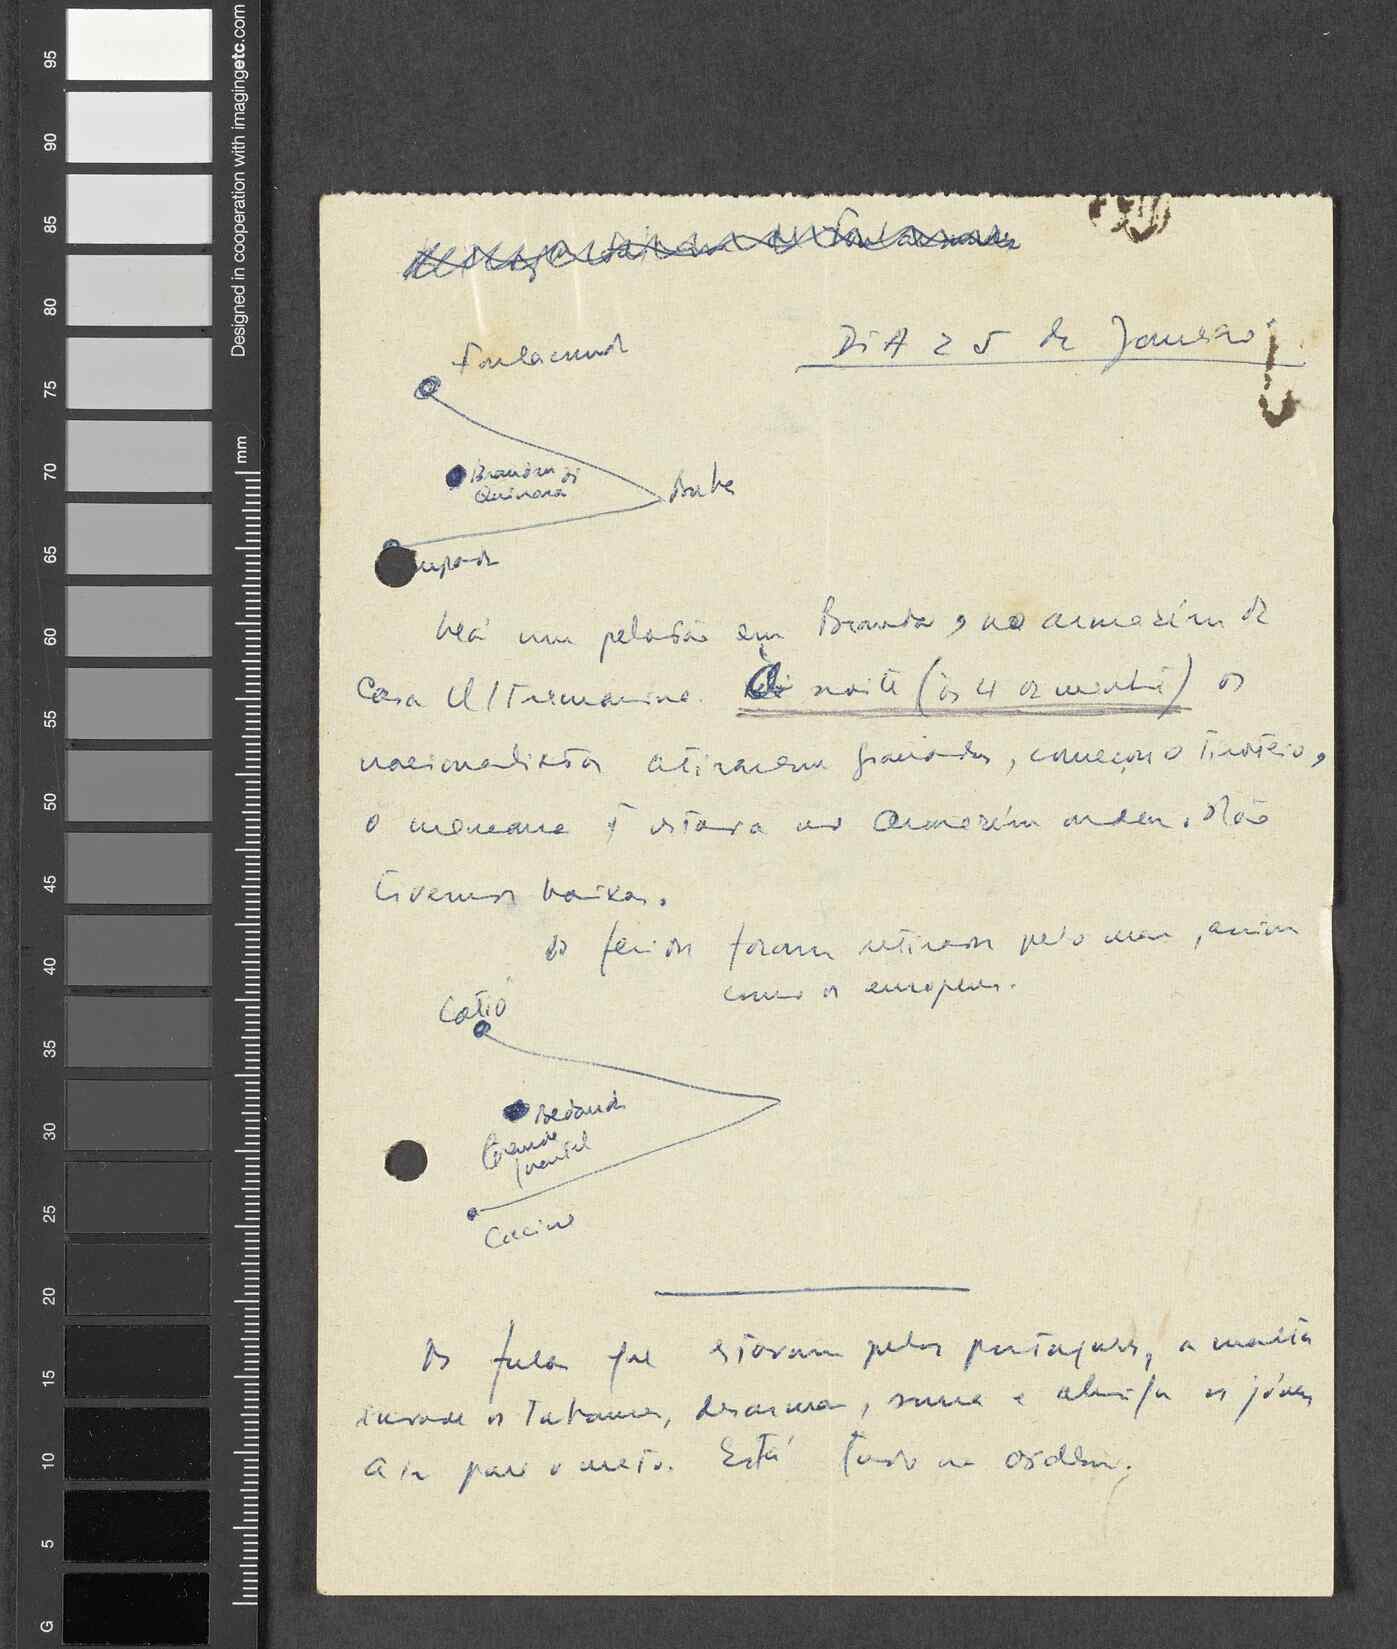 95
90
85
80
75
70
65
60
55
50
45
40
35
30
25
20
15
10
5
G
Designed in cooperation with imagingetc.com
mm
DiA 25 de Janeiro
Fulacunda
Brandão de
Quinara
Buba
Há um pelotão em Brandão, no armazém da
Casa Ultramarina. noite (às 4 da manhã) os
nacionalistas atiraram granadas, começou o tiroteio,
o mancarra q estava no armazém ardeu. Não
tivemos baixas.
Os feridos foram retirados pelo mar, assim
como os europeus.
Catió
Bedanda
Grande
Cacine
Os fulas que estavam pelos portugueses, a malta
invade as tabancas, desarma, e obriga os jóvens
a ir para o mato. Está tudo na ordem.